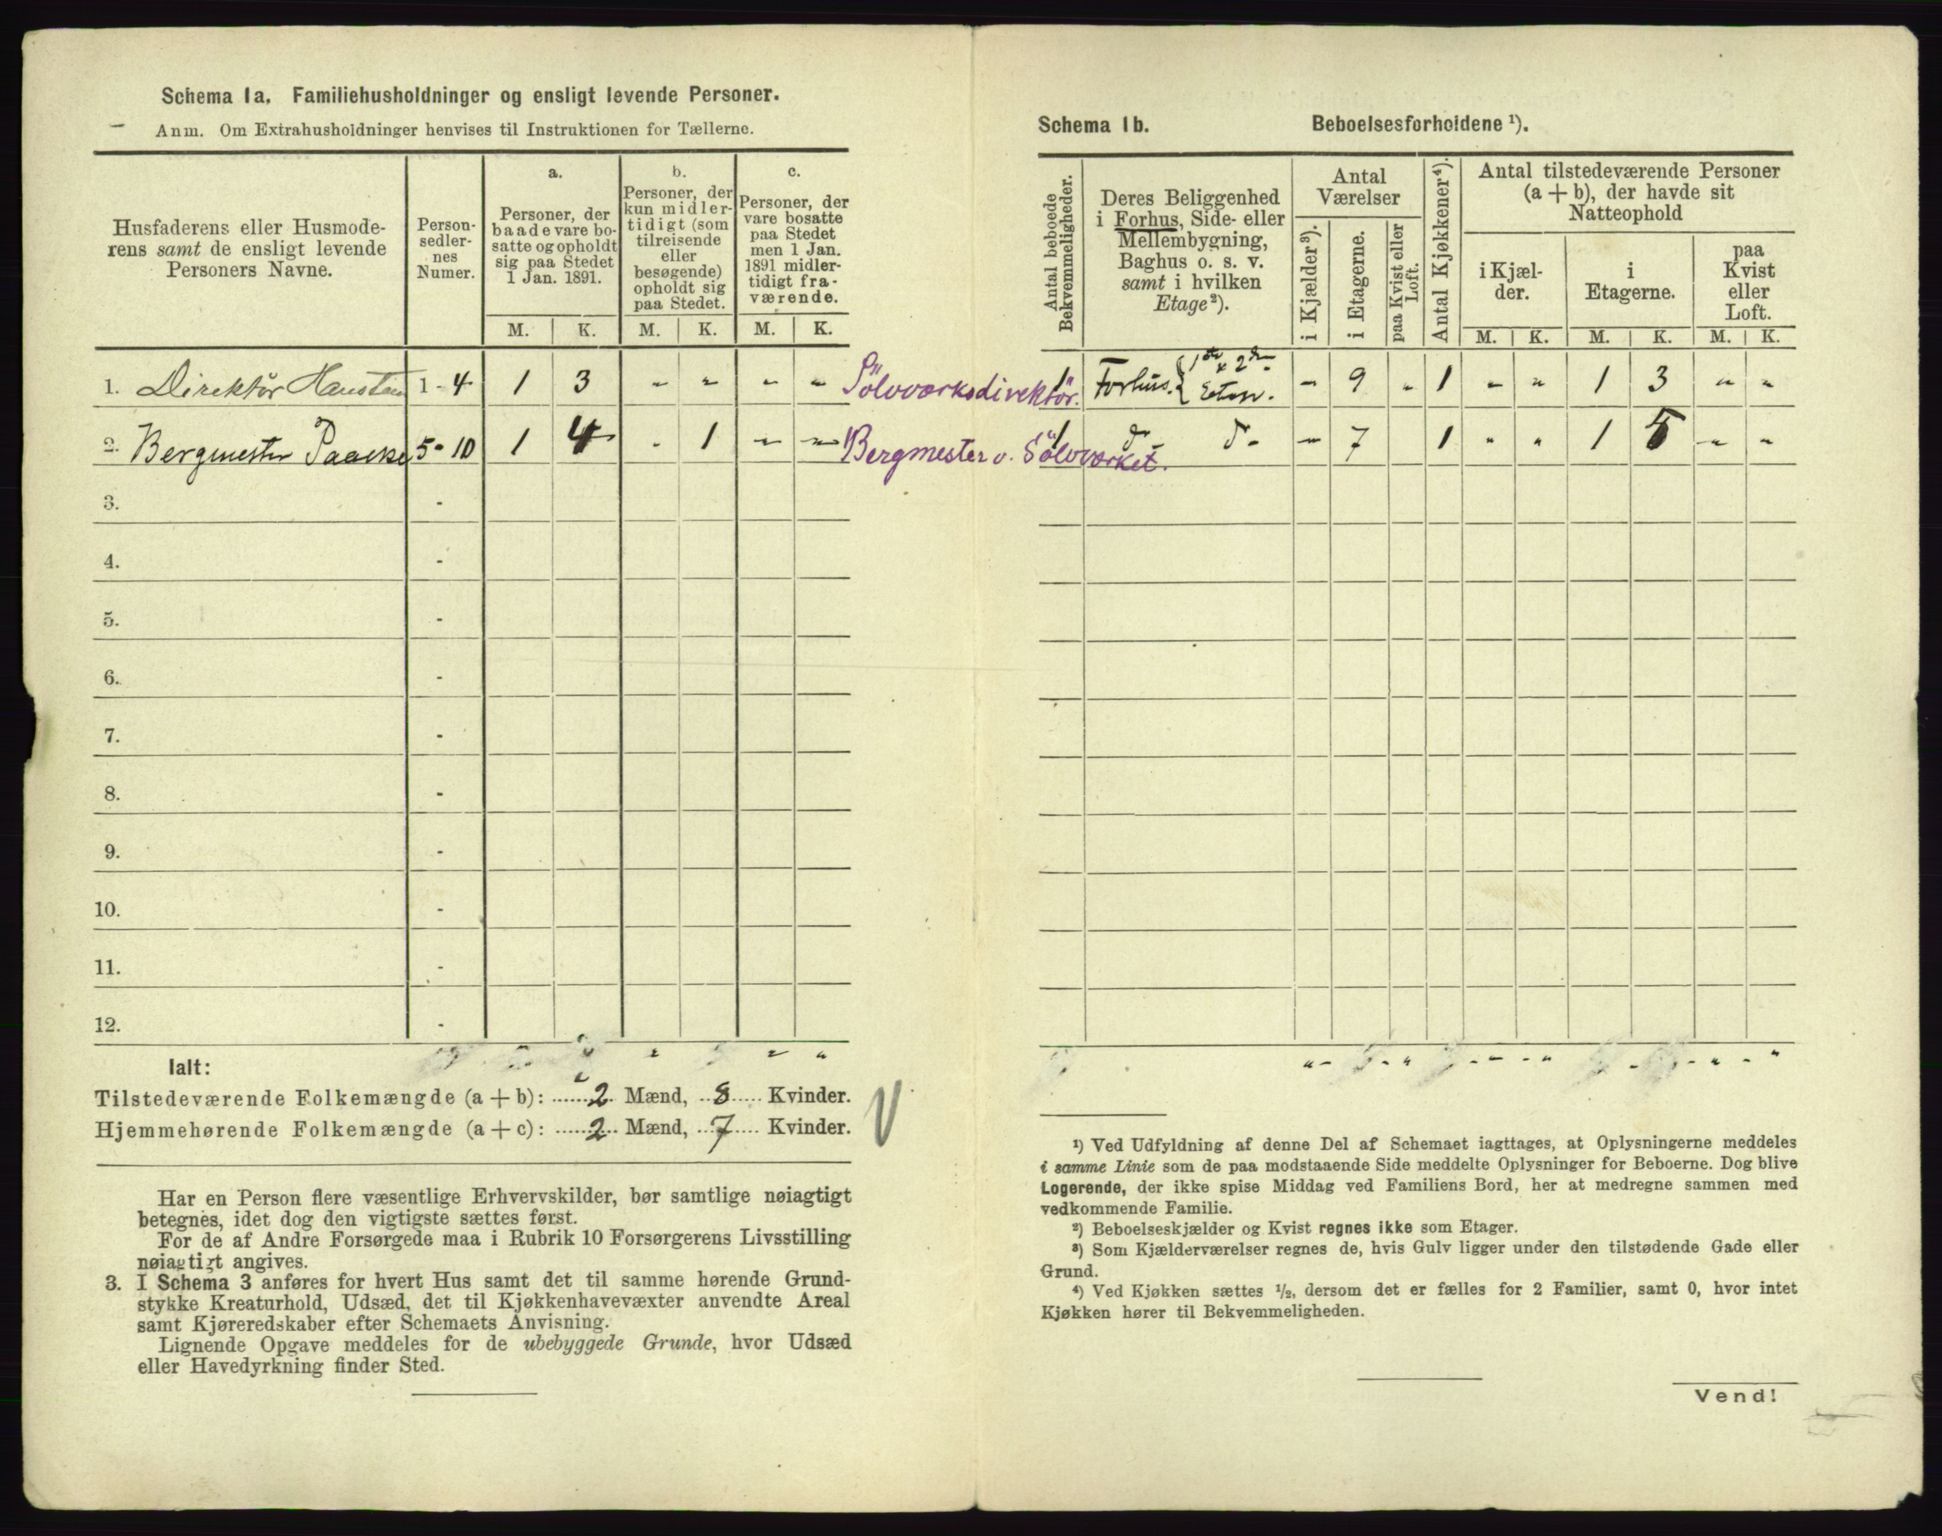 Schema 1a. Familiehusholdninger og ensligt levende Personer.
Anm. Om Extrahusholdninger henvises til Instruktionen for Tællerne.
Husfaderens eller Husmoderens samt de ensligt levende Personers Navne.
Personsedlernes Numer.
a.
Personer, der baade vare bosatte og opholdt sig paa Stedet 1 Jan. 1891.
b.
Personer, der kun midlertidigt (som tilreisende eller besøgende) opholdt sig paa Stedet.
c.
Personer, der vare bosatte paa Stedet men 1 Jan. 1891 midlertidigt fraværende.
M. K. M. K. M. K.
1. Direktør 1 - 4 1 3 " " " " Sölvværksdirektör.
2. Bergmester Paaske 5 - 10 1 4 " 1 " " Bergmester v. Sölvværket.
3. -
4. -
5. -
6. -
7. -
8. -
9. -
10. -
11. -
12. -
Ialt:
Tilstedeværende Folkemængde (a + b): 2 Mænd, 8 Kvinder.
Hjemmehørende Folkemængde (a + c): 2 Mænd, 7 Kvinder.
Har en Person flere væsentlige Erhvervskilder, bør samtlige nøiagtigt
betegnes, idet dog den vigtigste sættes først.
For de af Andre Forsørgede maa i Rubrik 10 Forsørgerens Livsstilling
nøiagtigt angives.
3. I Schema 3 anføres for hvert Hus samt det til samme hørende Grund-
stykke Kreaturhold, Udsæd, det til Kjøkkenhavevæxter anvendte Areal
samt Kjøreredskaber efter Schemaets Anvisning.
Lignende Opgave meddeles for de ubebyggede Grunde, hvor Udsæd
eller Havedyrkning finder Sted.
Schema 1b. Beboelsesforholdene ¹).
Antal beboede Bekvemmeligheder.
Deres Beliggenhed i Forhus, Side- eller Mellembygning, Baghus o. s. v. samt i hvilken Etage²).
Antal Værelser
i Kjælder³).
i Etagerne.
paa Kvist eller Loft.
Antal Kjøkkener⁴).
Antal tilstedeværende Personer (a + b), der havde sit Natteophold
i Kjælder.
i Etagerne.
paa Kvist eller Loft.
M. K. M. K. M. K.
1 Forhus. { 1ste & 2den " 9 " 1 " " 1 3 " "
1 do do " 7 1 " " 1 5 " "
¹) Ved Udfyldning af denne Del af Schemaet iagttages, at Oplysningerne meddeles
i samme Linie som de paa modstaaende Side meddelte Oplysninger for Beboerne. Dog blive
Logerende, der ikke spise Middag ved Familiens Bord, her at medregne sammen med
vedkommende Familie.
²) Beboelseskjælder og Kvist regnes ikke som Etager.
³) Som Kjælderværelser regnes de, hvis Gulv ligger under den tilstødende Gade eller
Grund.
⁴) Ved Kjøkken sættes ½, dersom det er fælles for 2 Familier, samt 0, hvor intet
Kjøkken hører til Bekvemmeligheden.
Vend!